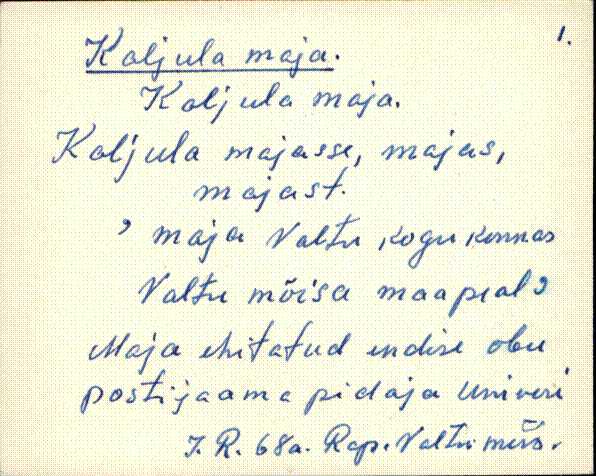 1.
Kaljula maja.
Kaljula maja.
Kaljula majasse, majas,
majast.
' maja Valtu kogukonnas
Valtu mõisa maapeal '
Maja ehitatud endise obu
postijaama pidaja
J. R. 68a. Rap. Valtu